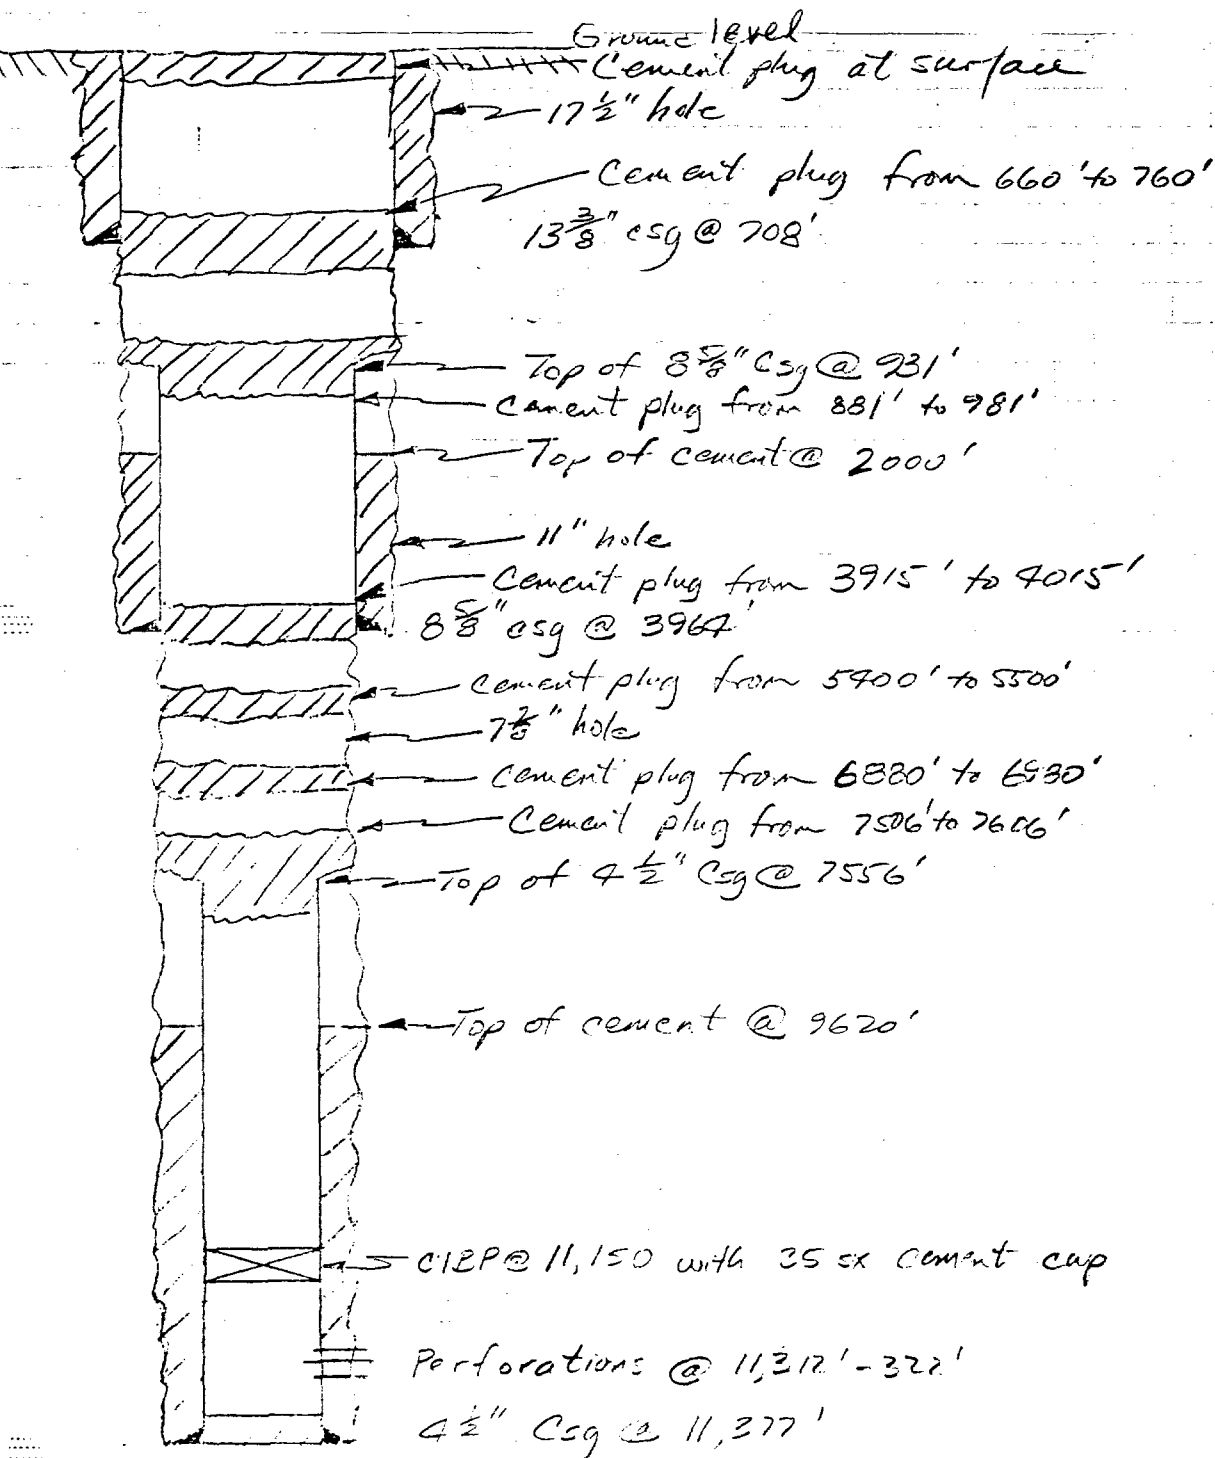 Ground level
Cement plug at surface
17 1/2" hole
Cement plug from 660' to 760'
13 3/8" csg @ 708'
Top of 8 5/8" Csg @ 931'
Cement plug from 881' to 981'
Top of cement @ 2000'
11" hole
Cement plug from 3915' to 4015'
8 5/8" csg @ 3964'
Cement plug from 5400' to 5500'
7 7/8" hole
Cement plug from to
Cement plug from 7506' to 7606'
Top of 4 1/2" Csg @ 7556'
Top of cement @ 9620'
CIBP @ 11,150 with 35 sx cement cap
Perforations @ 11,312'-322'
4 1/2" Csg @ 11,377'